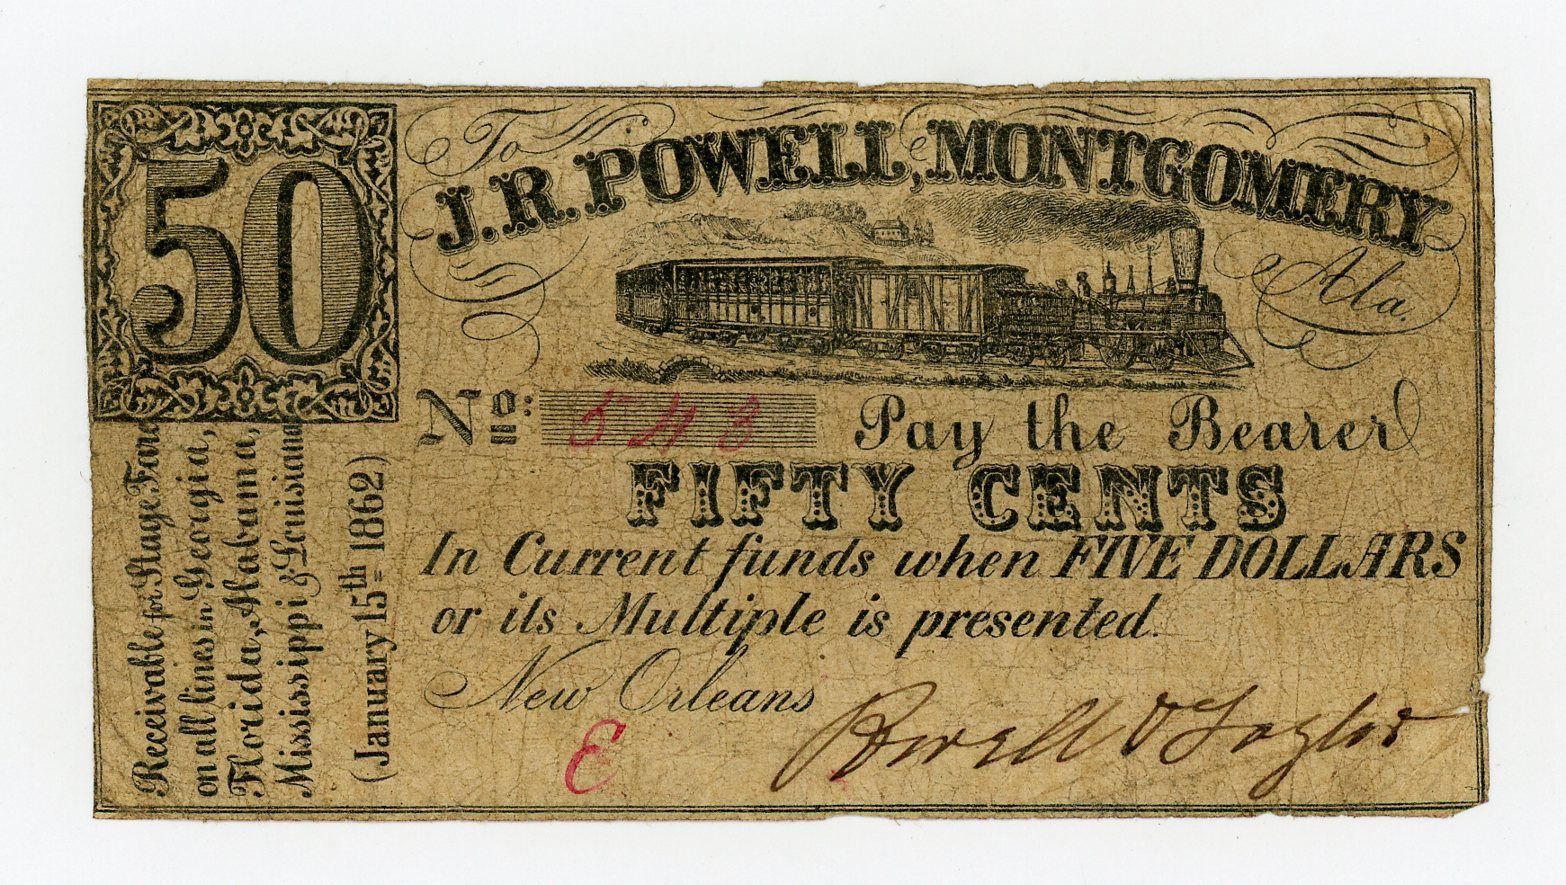 50
To
J.R. POWELL, MONTGOMERY
Ala.
No: 543 Pay the Bearer
FIFTY CENTS
In Current funds when FIVE DOLLARS
or its Multiple is presented.
New Orleans
E
Powell & Taylor
Receivable for Stage Fare
on all lines in Georgia,
Florida, Alabama,
Mississippi & Louisiana
(January 15th 1862)